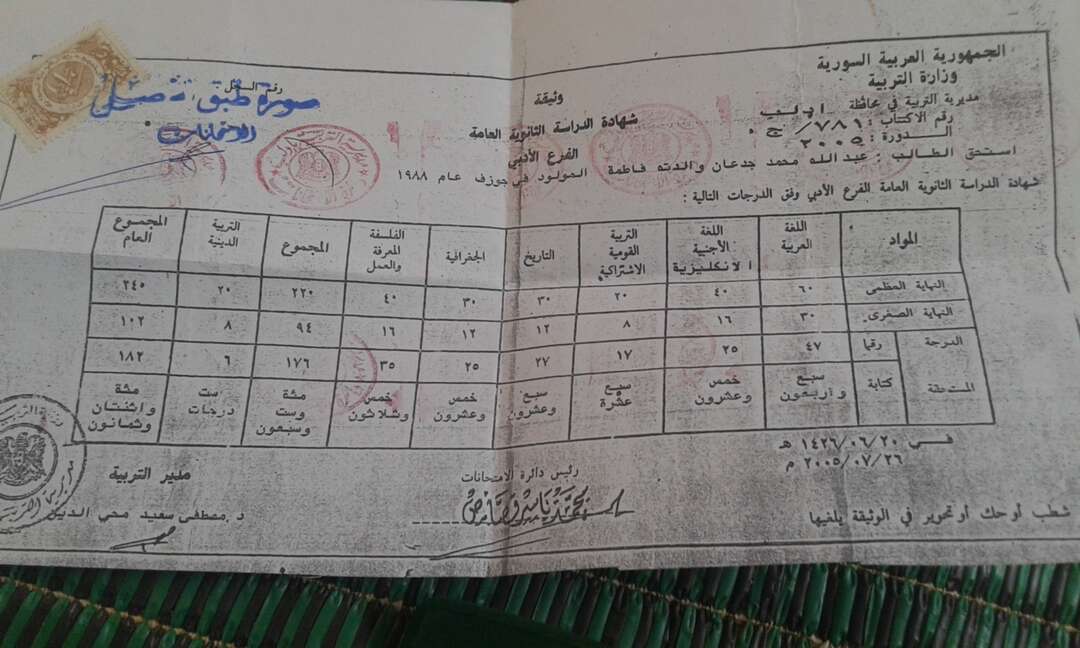 الجمهورية العربية السورية
وزارة التربية
مديرية التربية في محافظة ادلب
رقم الاكتتاب : ٧٨٩/ج
الدورة : ٢٠٠٥
رقم السجل
صورة طبق
الامتحانات
وثيقة
شهادة الدراسة الثانوية العامة
الفرع الأدبي
استحق الطالب : عبد الله محمد جدعان والدته فاطمة المولود في جوزف عام ١٩٨٨
شهادة الدراسة الثانوية العامة الفرع الأدبي وفق الدرجات التالية :
المواد اللغة العربية اللغة الأجنبية الانكليزية التربية القومية الاشتراكية التاريخ الجغرافية الفلسفة المعرفة والعمل المجموع التربية الدينية المجموع العام
النهاية العظمى ٦٠ ٤٠ ٢٠ ٣٠ ٣٠ ٤٠ ٢٢٠ ٢٠ ٢٤٥
النهاية الصغرى ٣٠ ١٦ ٨ ١٢ ١٢ ١٦ ٩٤ ٨ ١٠٢
الدرجة المستحقة رقما ٤٧ ٢٥ ١٧ ٢٧ ٢٥ ٣٥ ١٧٦ ٦ ١٨٢
كتابة سبع وأربعون خمس وعشرون سبع عشرة سبع وعشرون خمس وعشرون خمس وثلاثون مئة وست وسبعون ست درجات مئة واثنتان وثمانون
في ١٤٢٦/٠٦/٢٠ هـ
٢٠٠٥/٠٧/٢٦ م
رئيس دائرة الامتحانات
مدير التربية
د.مصطفى سعيد محي الدين
شطب أو حك أو تحوير في الوثيقة يلغيها